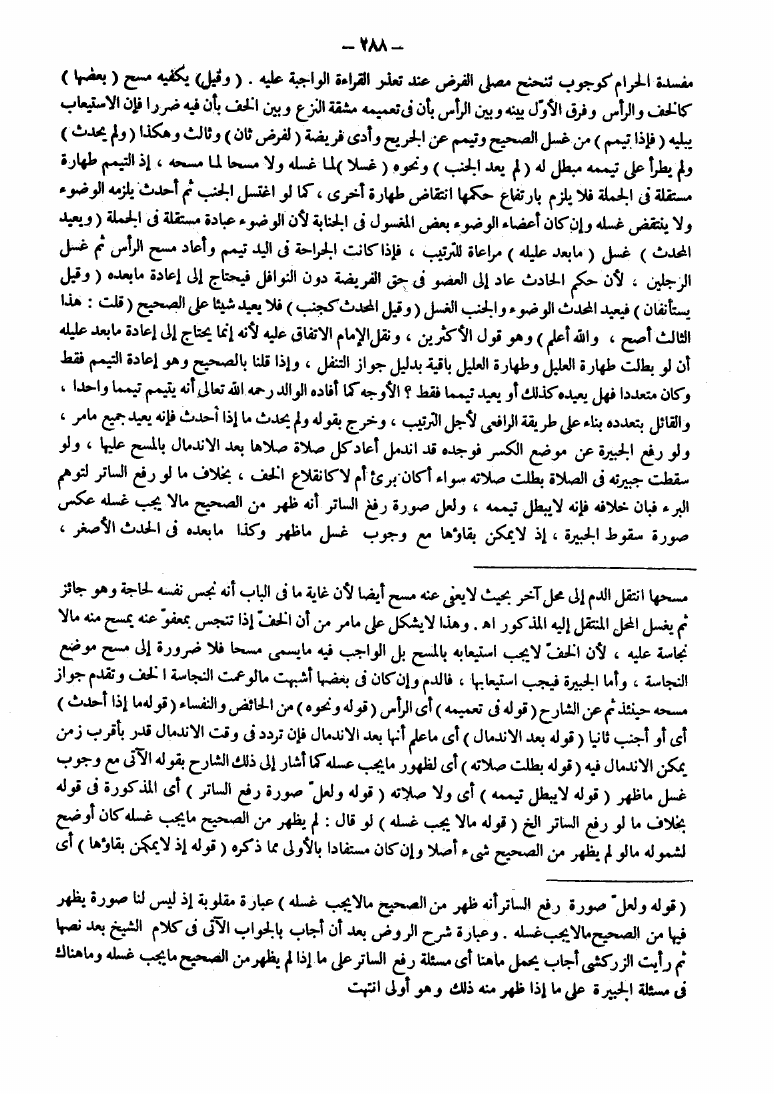 — ٢٨٨ —
مفسدة الحرام كوجوب تنحنح مصلى الفرض عند تعذر القراءة الواجبة عليه . ( وقيل) يكفيه مسح ( بعضها )
كالخف والرأس وفرق الأوّل بينه وبين الرأس بأن فى تعميمه مشقة النزع وبين الخف بأن فيه ضررا فإن الاستيعاب
يبليه ( فإذا تيمم ) من غسل الصحيح وتيمم عن الجريح وأدى فريضة ( لفرض ثان ) وثالث وهكذا ( ولم يحدث )
ولم يطرأ على تيممه مبطل له ( لم يعد الجنب ) ونحوه ( غسلا )لما غسله ولا مسحا لما مسحه ، إذ التيمم طهارة
مستقلة فى الجملة فلا يلزم بارتفاع حكمها انتقاض طهارة أخرى ، كما لو اغتسل الجنب ثم أحدث يلزمه الوضوء
ولا ينتقض غسله وإن كان أعضاء الوضوء بعض المغسول فى الجنابة لأن الوضوء عبادة مستقلة فى الجملة ( ويعيد
المحدث ) غسل ( مابعد عليله ) مراعاة للترتيب ، فإذا كانت الجراحة فى اليد تيمم وأعاد مسح الرأس ثم غسل
الرجلين ، لأن حكم الحادث عاد إلى العضو فى حق الفريضة دون النوافل فيحتاج إلى إعادة مابعده ( وقيل
يستأنفان ) فيعيد المحدث الوضوء والجنب الغسل ( وقيل المحدث كجنب ) فلا يعيد شيئا على الصحيح ( قلت : هذا
الثالث أصح ، والله أعلم ) وهو قول الأكثرين ، ونقل الإمام الاتفاق عليه لأنه إنما يحتاج إلى إعادة مابعد عليله
أن لو بطلت طهارة العليل وطهارة العليل باقية بدليل جواز التنفل ، وإذا قلنا بالصحيح وهو إعادة التيمم فقط
وكان متعددا فهل يعيده كذلك أو يعيد تيمما فقط ؟ الأوجه كما أفاده الوالد رحمه الله تعالى أنه يتيمم تيمما واحدا ،
والقائل بتعدده بناء على طريقة الرافعى لأجل الترتيب ، وخرج بقوله ولم يحدث ما إذا أحدث فإنه يعيد جميع مامر ،
ولو رفع الجبيرة عن موضع الكسر فوجده قد اندمل أعاد كل صلاة صلاها بعد الاندمال بالمسح عليها ، ولو
سقطت جبيرته فى الصلاة بطلت صلاته سواء أكان برئ أم لا كانقلاع الخف ، بخلاف ما لو رفع الساتر لتوهم
البرء فبان خلافه فإنه لايبطل تيممه ، ولعل صورة رفع الساتر أنه ظهر من الصحيح مالا يجب غسله عكس
صورة سقوط الجبيرة ، إذ لايمكن بقاؤها مع وجوب غسل ماظهر وكذا مابعده فى الحدث الأصغر ،
مسحها انتقل الدم إلى محل آخر بحيث لايعفى عنه مسح أيضا لأن غاية ما فى الباب أنه نجس نفسه لحاجة وهو جائز
ثم يغسل المحل المنتقل إليه المذكور اه . وهذا لايشكل على مامر من أن الخفّ إذا تنجس بمعفوّ عنه يمسح منه مالا
نجاسة عليه ، لأن الخفّ لايجب استيعابه بالمسح بل الواجب فيه مايسمى مسحا فلا ضرورة إلى مسح موضع
النجاسة ، وأما الجبيرة فيجب استيعابها ، فالدم وإن كان فى بعضها أشبهت مالوعمت النجاسة الخف وتقدم جواز
مسحه حينئذ ثم عن الشارح ( قوله فى تعميمه ) أى الرأس ( قوله ونحوه ) من الحائض والنفساء ( قوله ما إذا أحدث )
أى أو أجنب ثانيا ( قوله بعد الاندمال ) أى ماعلم أنها بعد الاندمال فإن تردد فى وقت الاندمال قدر بأقرب زمن
يمكن الاندمال فيه ( قوله بطلت صلاته ) أى لظهور مايجب غسله كما أشار إلى ذلك الشارح بقوله الآتى مع وجوب
غسل ماظهر ( قوله لايبطل تيممه ) أى ولا صلاته ( قوله ولعلّ صورة رفع الساتر ) أى المذكورة فى قوله
بخلاف ما لو رفع الساتر الخ ( قوله مالا يجب غسله ) لو قال : لم يظهر من الصحيح مايجب غسله كان أوضح
لشموله مالو لم يظهر من الصحيح شىء أصلا وإن كان مستفادا بالأولى مما ذكره ( قوله إذ لايمكن بقاؤها ) أى
( قوله ولعلّ صورة رفع الساتر أنه ظهر من الصحيح مالايجب غسله ) عبارة مقلوبة إذ ليس لنا صورة يظهر
فيها من الصحيح مالايجب غسله . وعبارة شرح الروض بعد أن أجاب بالجواب الآتى فى كلام الشيخ بعد نصها
ثم رأيت الزركشى أجاب بحمل ماهنا أى مسئلة رفع الساتر على ما إذا لم يظهر من الصحيح مايجب غسله وماهناك
فى مسئلة الجبيرة على ما إذا ظهر منه ذلك وهو أولى انتهت